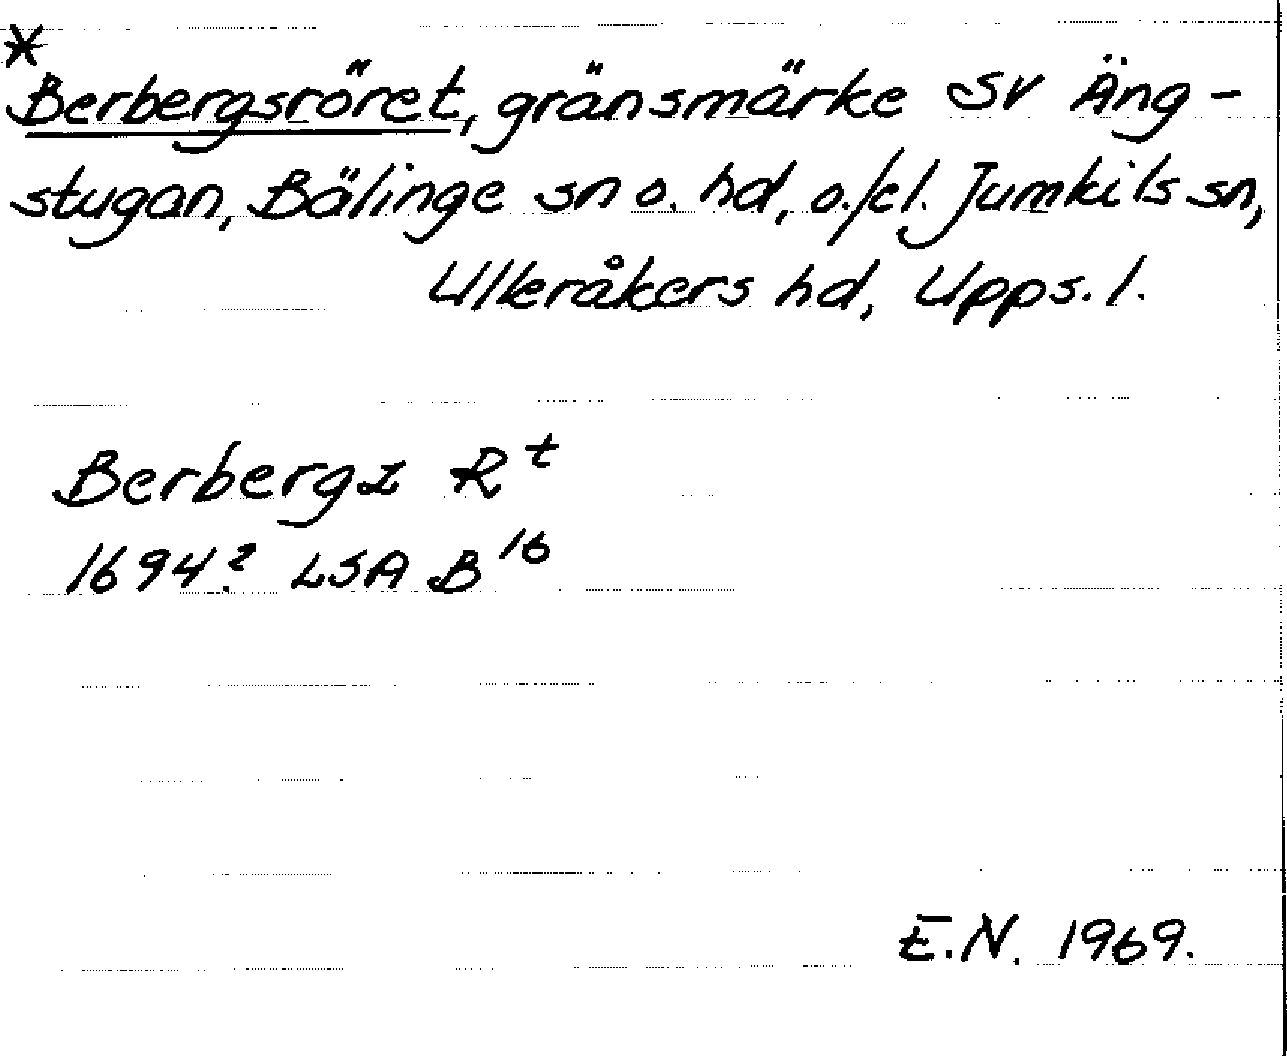 *
Berbergsröret, gränsmärke SV Äng-
stugan, Bälinge sn o. hd, o./el. Jumkils sn,
Ulleråkers hd, Upps. l.
Bergbergz Rt
1694? LSA B16
E.N. 1969.